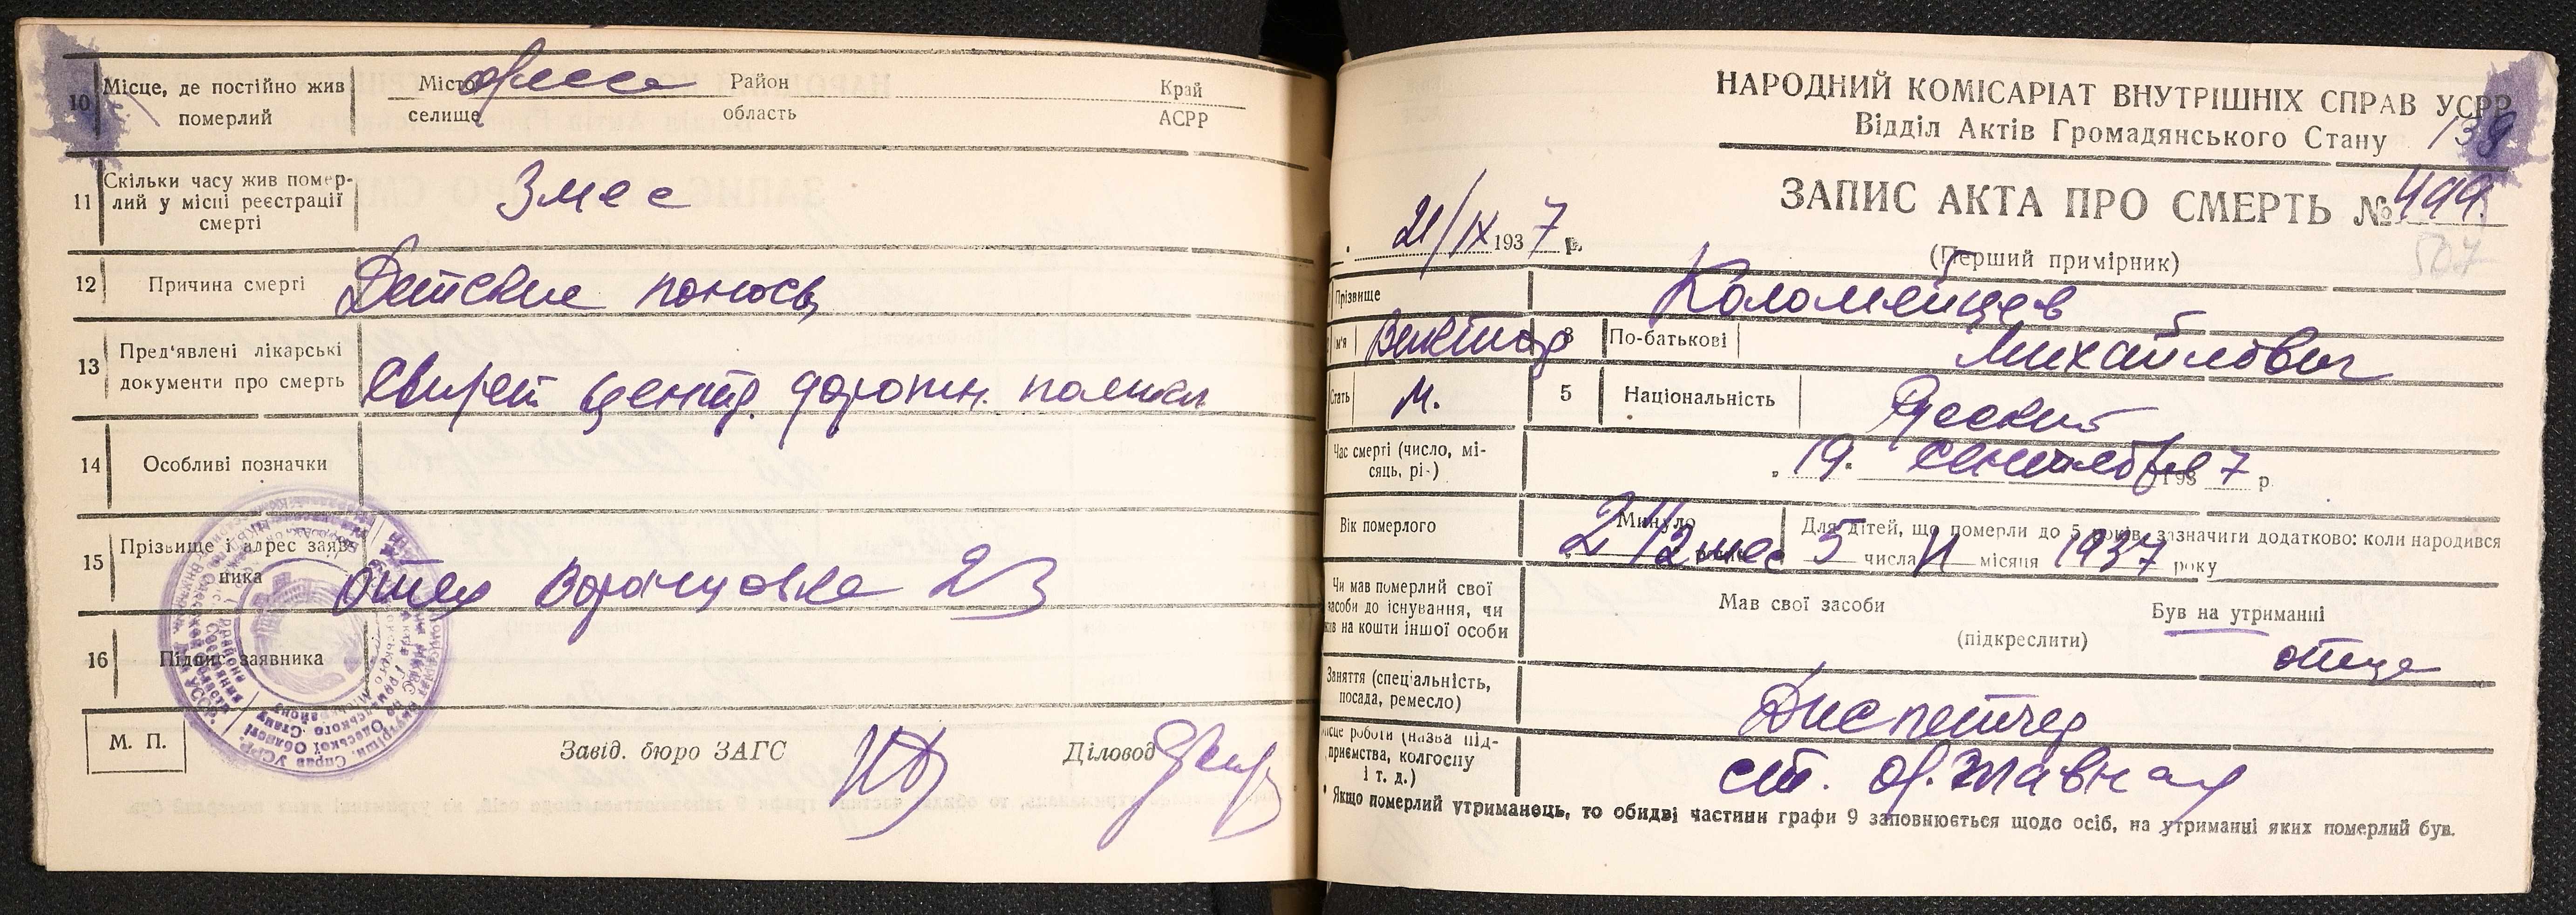 10 Місце, де постійно жив померлий
Місто Одесса Район Край
селище область АСРР
11 Скільки часу жив померлий у місці реєстрації смерті
3 мес
12 Причина смерті Детские поносы
13 Пред'явлені лікарські документи про смерть
центр. дорожн. поликл
14 Особливі позначки
15 Прізвище і адрес заявника
отец Воронцовка 23
16 Підпис заявника
М. П. Завід. бюро ЗАГС Діловод
НАРОДНИЙ КОМІСАРІАТ ВНУТРІШНІХ СПРАВ УСРР
Відділ Актів Громадянського Стану 139
ЗАПИС АКТА ПРО СМЕРТЬ № 499.
21/IX 1937 р.
(Перший примірник) 507
Прізвище Коломейцев
Ім'я Виктор 3 По-батькові Михайлович
Стать М. 5 Національність Русский
Час смерті (число, місяць, рі-) „ 19. сентября 1937 р
Вік померлого Минуло 2 1/2 мес
Для дітей, що померли до 5 років, зазначити додатково: коли народився
5 числа місяця 1937 року
Чи мав померлий свої засоби до існування, чи жив на кошти іншої особи
Мав свої засоби Був на утриманні
(підкреслити) отца
Заняття (спеціальність, посада, ремесло) Диспетчер
Місце роботи (назва підприємства, колгоспу і т. д.) ст. Од. Главная
* Якщо померлий утриманець, то обидві частини графи 9 заповнюється щодо осіб, на утриманні яких померлий був.